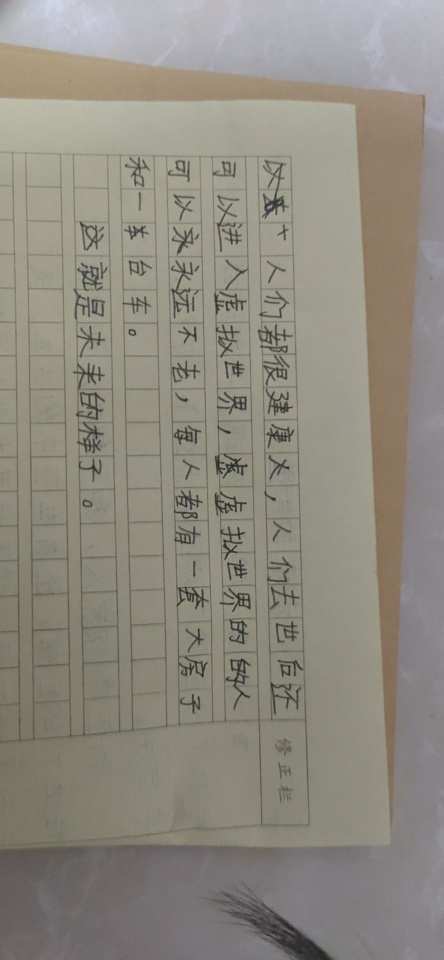 以 人们都很健康，人们去世后还
可以进入虚拟世界，虚拟世界的人
可以永永远不老，每人都有一套大房子
和一台车。
这就是未来的样子。
修正栏